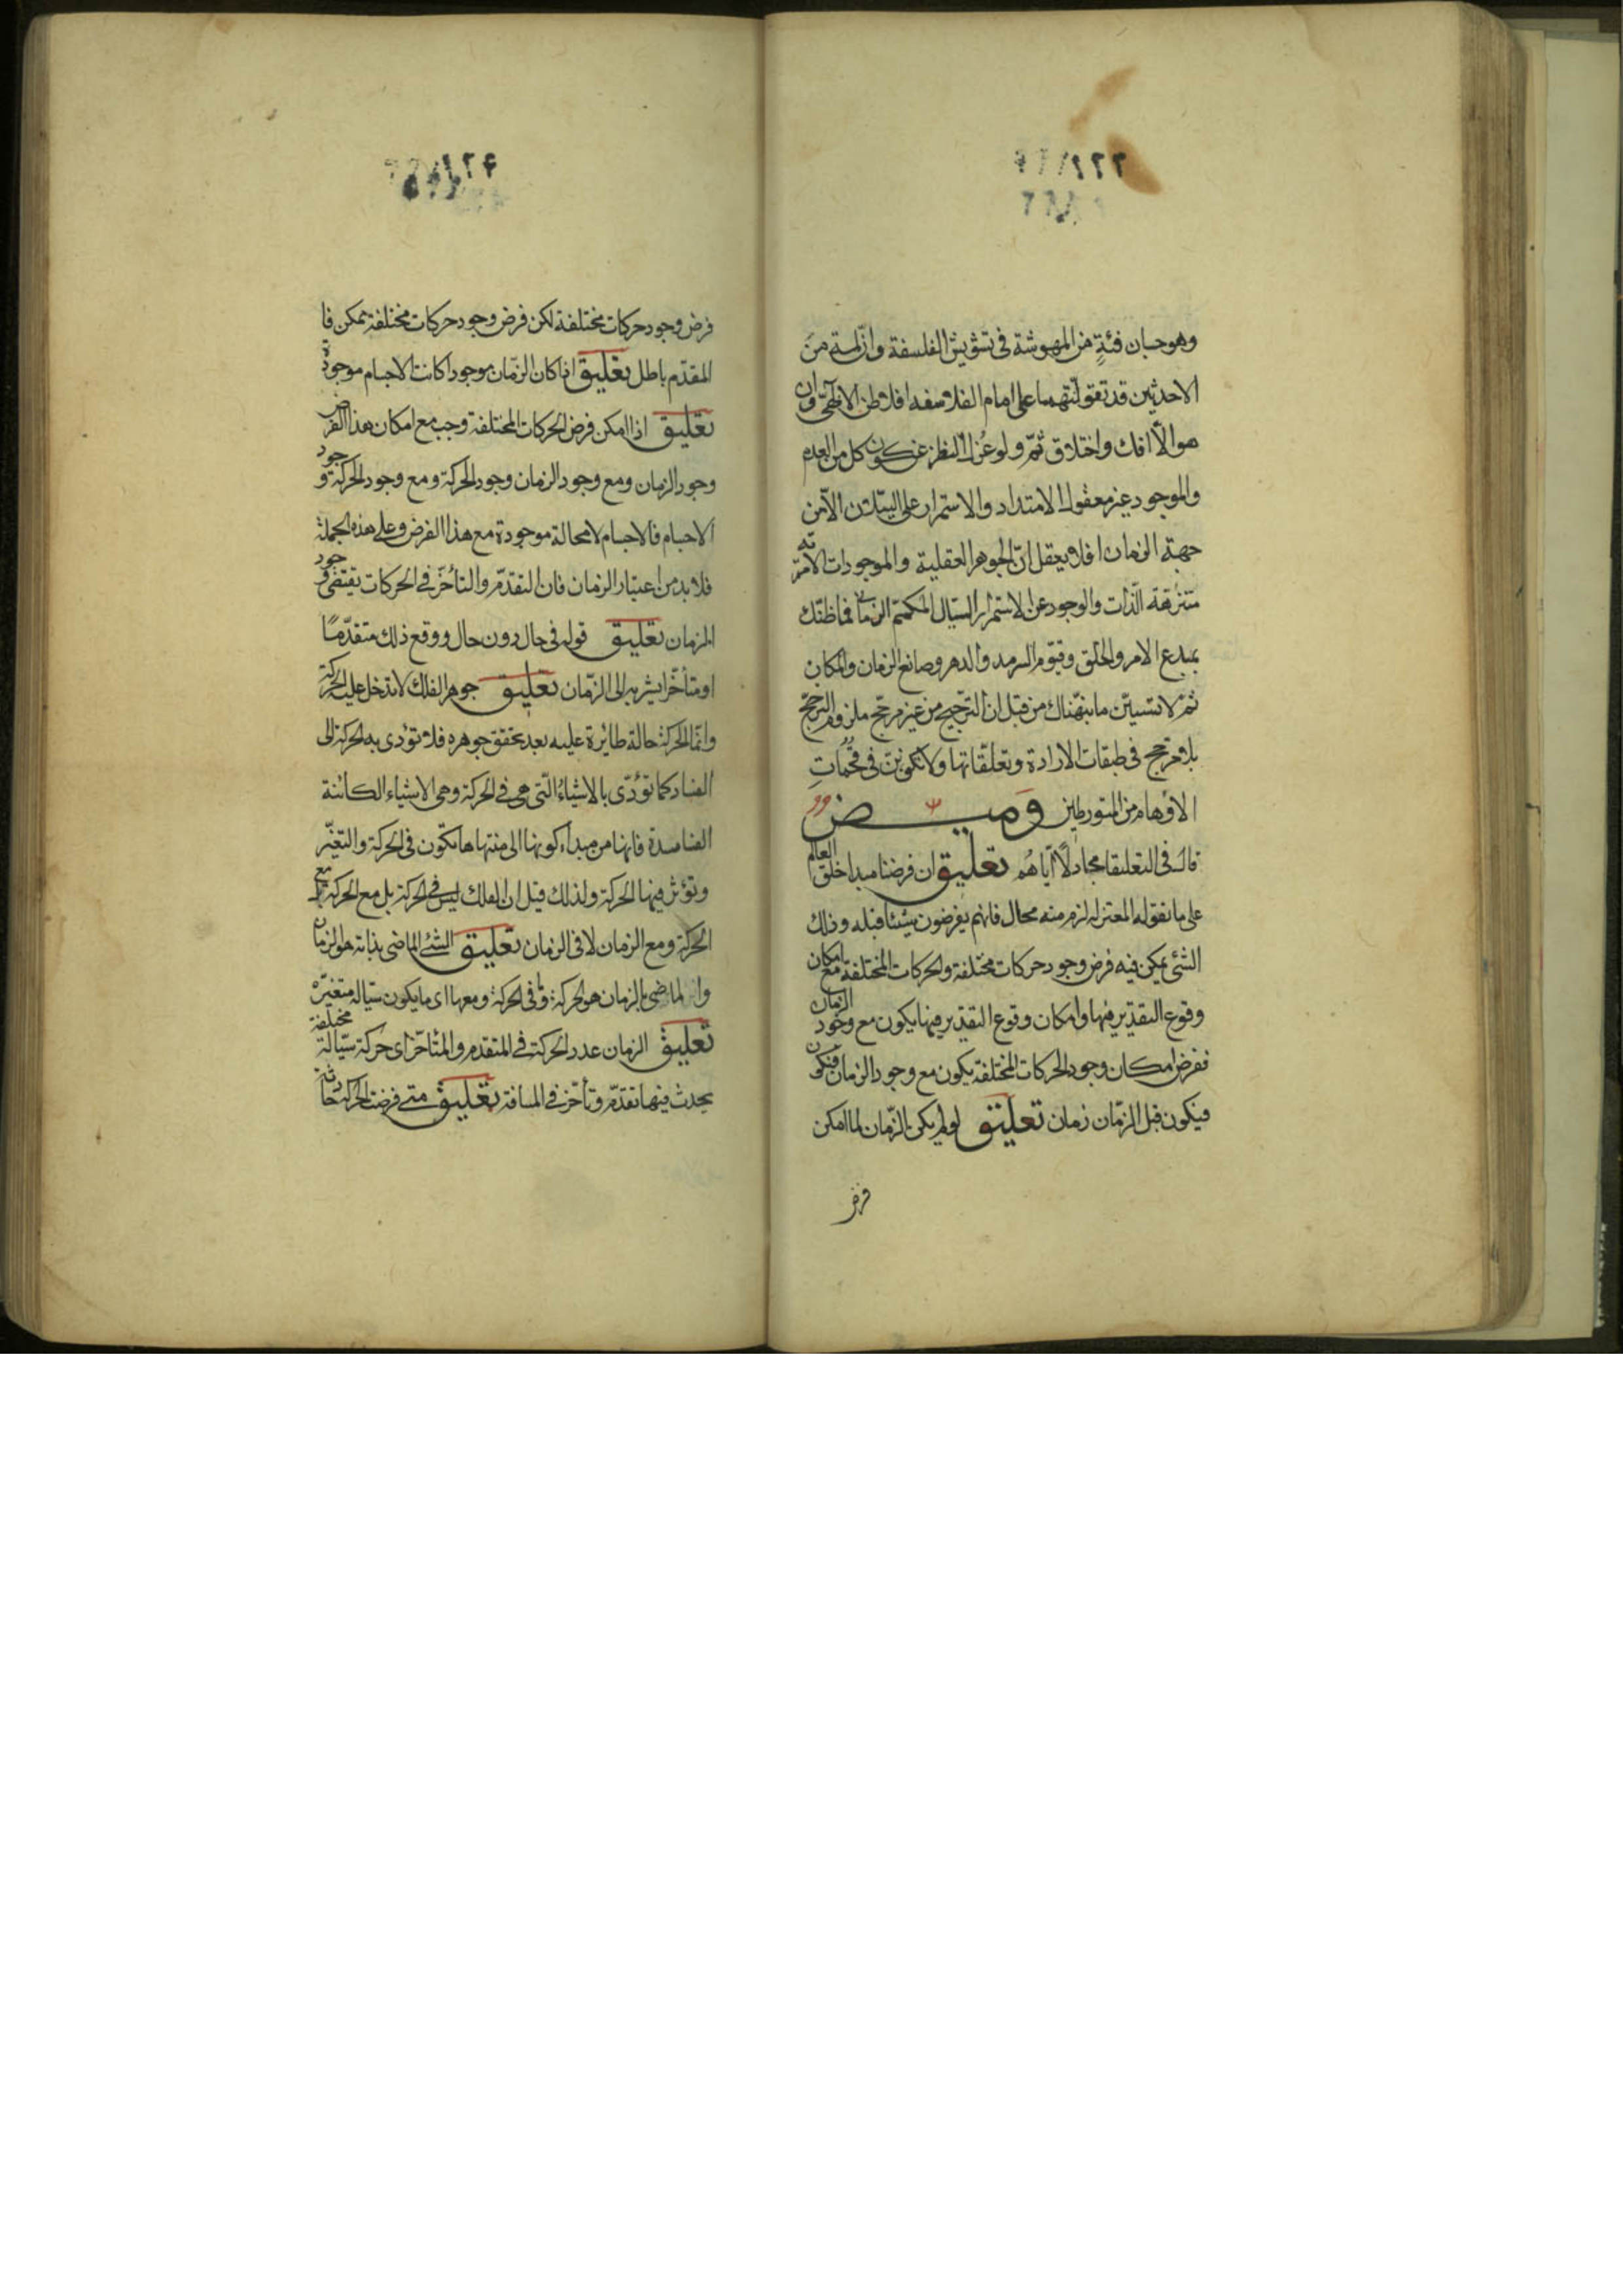 وهو حسبان فئةٍ من المهوشة فى تشويش الفلسفة وان لمتم من
الاحدثين قد تقولتهما على امام الفلاسفه افلاطن الالهىّ وان
هو الّا افك واختلاق ثمّ ولو عُزل النظر عن كون كل من العدم
والموجود غير معقول الامتداد والاستمرار على السيلان الّا من
جهة الزمان افلا يعقل انّ الجوهر العقلية والموجودات الامرية
متنزهة الذات والوجود عن الاستمرار السيال المكمم الزمانى فما ظنك
بمبدع الامر والخلق وقيّوم السرمد والدهر وصانع الزمان والمكان
ثم لا تنسينّ ما نبّهناك من قبل ان الترجيح من غير مرجّح ملزوم الترجّح
بلا مرجح فى طبقات الارادة وتعلّقاتها ولا تكوننّ فى قُحُمات
الاوهام من المتورطين وميض
قال فى التعليقات مجادلًا اياهم تعليق ان فرضنا مبدا خلق العالم
على ما تقوله المعتزله لزم منه محال فانهم يفرضون شيئا قبله وذلك
الشئ يمكن فيه فرض وجود حركات مختلفة والحركات المختلفة مع امكان
وقوع التقدير فيها وامكان وقوع التقدير فيها يكون مع وجود الزمان
ففرض امكان وجود الحركات المختلفة يكون مع وجود الزمان فيكون
فيكون قبل الزمان زمان تعليق لو لم يكن الزمان لما امكن
فرض
١٢٤
فرض وجود حركات مختلفة لكن فرض وجود حركات مختلفة ممكن فا
لمقدّم باطل تعليق اذا كان الزمان موجودا كانت الاجسام موجودة
تعليق اذا امكن فرض الحركات المختلفة وجب مع امكان هذا الفرض
وجود الزمان ومع وجود الزمان وجود الحركة ومع وجود الحركة وجود
الاجسام فالاجسام لا محالة موجودة مع هذا الفرض وعلى هذه الجملة
فلا بد من اعتبار الزمان فان التقدّم والتأخّر فى الحركات يقتضى وجود
الزمان تعليق قوله فى حال دون حال ووقع ذلك متقدّمًا
او متأخّرا يشير به الى الزّمان تعليق جوهر الفلك لا تدخل عليه الحركة
وانّما الحركة حالة طارئة عليه بعد تحقق جوهره فلا تؤدى به الحركة الى
الفساد كما تؤدّى بالاشياء الّتى هى فى الحركة وهى الاشياء الكائنة
الفاسدة فانها من مبداء كونها الى منتهاها تكوّن فى الحركة والتغيّر
وتؤثر فيها الحركة ولذلك قيل ان الفلك ليس فى الحركة بل مع الحركة مع
الحركة ومع الزمان لا فى الزمان تعليق الشئ الماضى بذاته هو الزمان
والماضى بالزمان هو الحركة وما فى الحركة ومعها اى ما يكون سيّاله متغيّره
تعليق الزمان عدد الحركة فى المتقدم والمتأخّر اى حركة سيّالة مختلفة
يحدث فيها تقدّم وتأخّر فى المسافة تعليق متى فرضنا لحركة حادثة